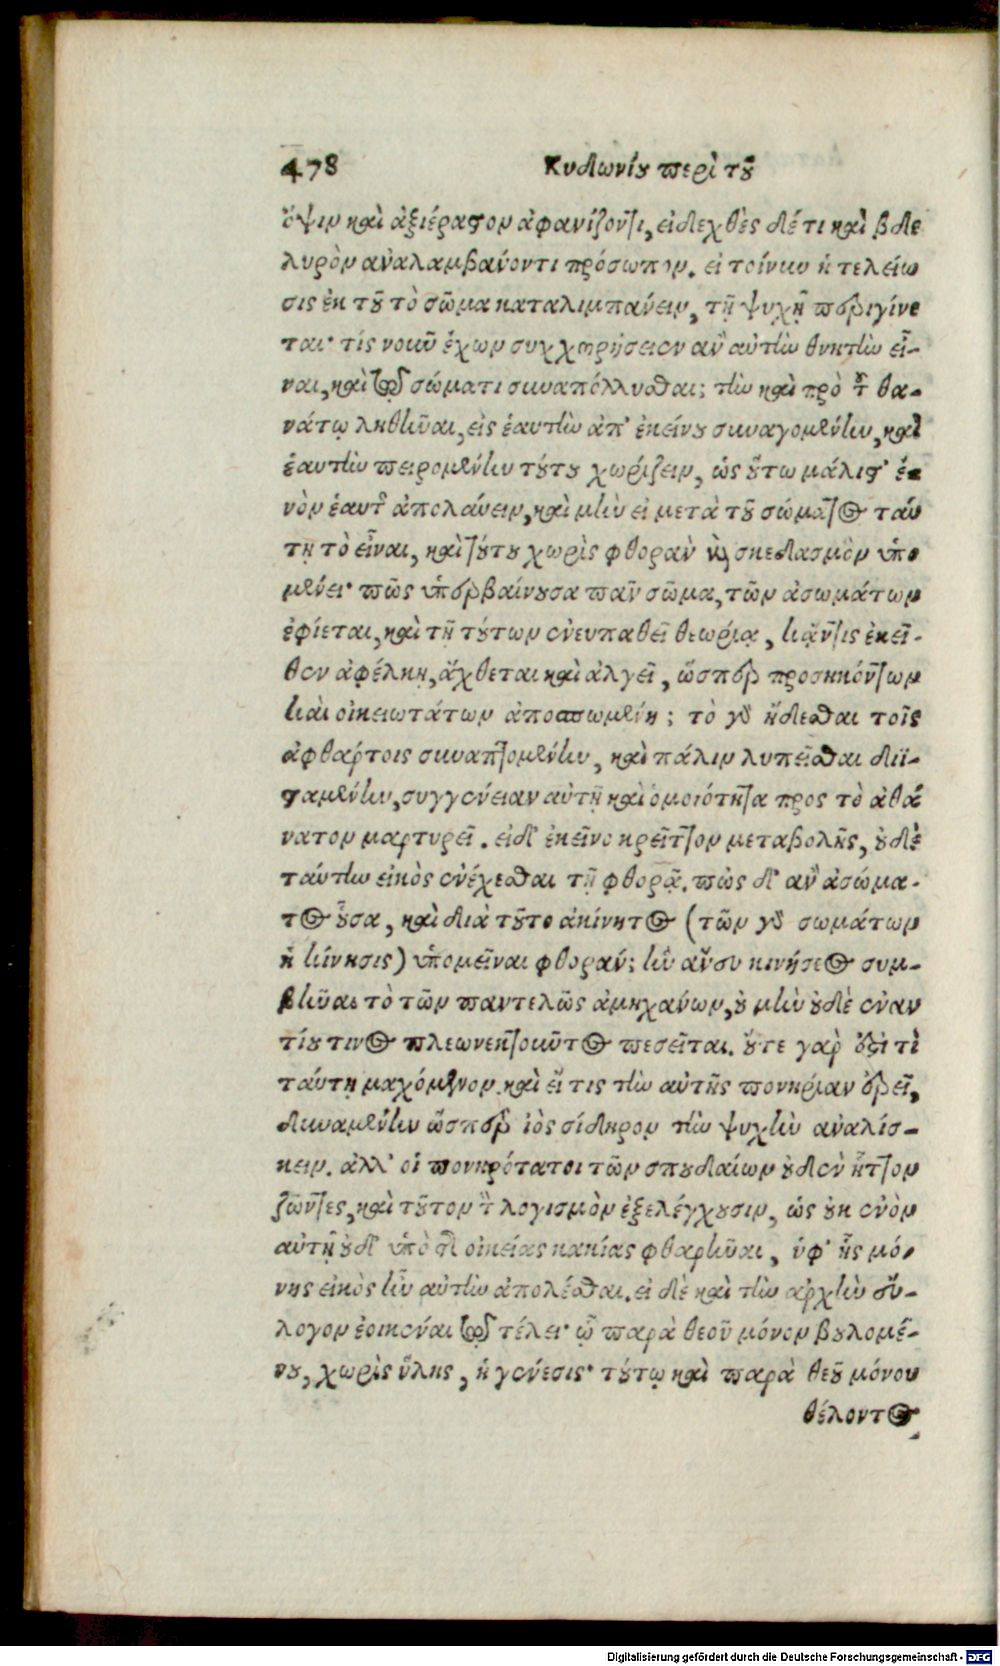 478 Κυδωνίου περὶ τοῦ
ὄψιν καὶ ἀξιέραστον ἀφανίζοντι, εἰδεχθὲς δέ τι καὶ βδε
λυρὸν ἀναλαμβάνοντι πρόσωπον. εἰ τοίνυν ἡ τελείω
σις ἐκ τοῦ τὸ σῶμα καταλιμπάνειν, τῇ ψυχῇ περιγίνε
ται· τίς νοῦν ἔχων συγχωρήσειεν ἂν αὐτὴν θνητὴν εἶ-
ναι, καὶ τῷ σώματι συναπόλλυσθαι; τὴν καὶ πρὸ τοῦ θα-
νάτῳ ληθῆναι, εἰς ἑαυτὴν ἀπ' ἐκείνου συναγομένην, καὶ
ἑαυτὴν πειρομένην τούτου χωρίζειν, ὡς οὕτω μάλιστ' ἐ-
νὸν ἑαυτῆς ἀπολαύειν, καὶ μὴν εἰ μετὰ τοῦ σώματος ταύ
τῃ τὸ εἶναι, καὶ τούτου χωρὶς φθορὰν καὶ σκεδασμὸν ὑπο
μένει· πῶς ὑπερβαίνουσα πᾶν σῶμα, τῶν ἀσωμάτων
ἐφίεται, καὶ τῇ τούτων ἐνευπαθεῖ θεωρίᾳ, κἄντις ἐκεῖ-
θεν ἀφέλκῃ, ἄχθεται καὶ ἀλγεῖ, ὥσπερ προσηκόντων
καὶ οἰκειωτάτων ἀποσπωμένη; τὸ γὰρ ἥδεσθαι τοῖς
ἀφθάρτοις συναπτομένην, καὶ πάλιν λυπεῖσθαι διϊ-
σταμένην, συγγένειαν αὐτῇ καὶ ὁμοιότητα προς τὸ ἀθά
νατον μαρτυρεῖ. εἰ δ' ἐκεῖνο κρεῖττον μεταβολῆς, οὐδὲ
ταύτην εἰκὸς ἐνέχεσθαι τῇ φθορᾷ. πῶς δ' ἂν ἀσώμα-
τος οὖσα, καὶ διὰ τοῦτο ἀκίνητος (τῶν γὰρ σωμάτων
ἡ κίνησις) ὑπομεῖναι φθοράν; ἣν ἄνευ κινήσεως συμ-
βῆναι τὸ τῶν παντελῶς ἀμηχάνων, οὐ μὴν οὐδὲ ἐναν
τίου τινος πλεονεκτοῦντος πεσεῖται. οὔτε γάρ ἐστί τι
ταύτῃ μαχόμενον. καὶ εἴ τις τὴν αὐτῆς πονηρίαν ἐρεῖ,
δυναμένην ὥσπερ ἰὸς σίδηρον τὴν ψυχὴν ἀναλίσ-
κειν. ἀλλ' οἱ πονηρότατοι τῶν σπουδαίων οὐδὲν ἧττον
ζῶντες, καὶ τοῦτον τὸν λογισμὸν ἐξελέγχουσιν, ὡς οὐκ ἐνὸν
αὐτῇ οὐδ' ὑπὸ τῆς οἰκείας κακίας φθαρῆναι, ὑφ' ἧς μό-
νης εἰκὸς ἦν αὐτὴν ἀπολέσθαι. εἰ δὲ καὶ τὴν ἀρχὴν εὔ-
λογον ἐοικέναι τῷ τέλει· ᾧ παρὰ θεοῦ μόνον βουλομέ-
νου, χωρὶς ὕλης, ἡ γένεσις· τούτῳ καὶ παρὰ θεοῦ μόνου
θέλοντος
Digitalisierung gefördert durch die Deutsche Forschungsgemeinschaft - DFG